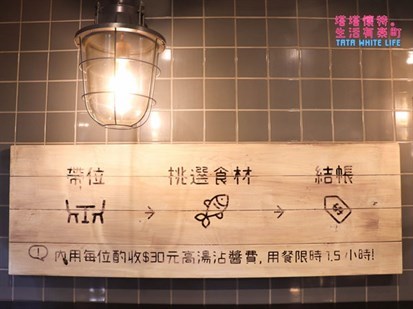 塔塔懷特。
生活有柰町
TATA WHITE LIFE
帶位 桃選食材 結帳
→ →
$$
! 內用每位酌收$30元高湯沾醬費, 用餐限時1.5小時!